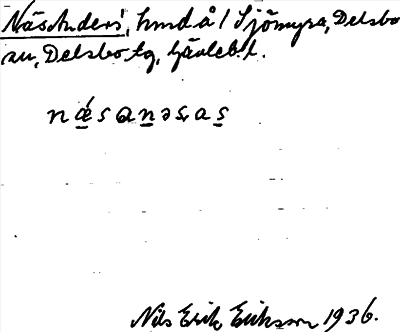 Näs Anders', hmd å 1 Sjömyra, Delsbo
sn, Delsbo tg, Gävleb. l.
næ̂sanəsas
Nils Erik Eriksson 1936.